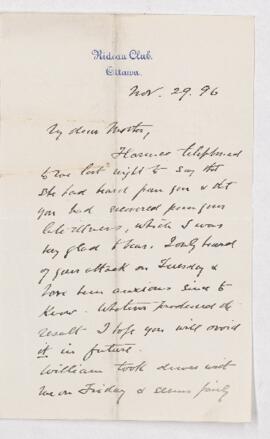 Rideau Club.
Ottawa.
Nov. 29. 96
My dear
Florence telephoned
to me last night to say that
she had heard from you & that
you had recovered from your
late illness, which I was
very glad to hear. I only heard
of your attack on Tuesday &
have been anxious since to
know. Whatever produced the
result I hope you will avoid
it in future.
William took dinner with
me on Friday & seems fairly